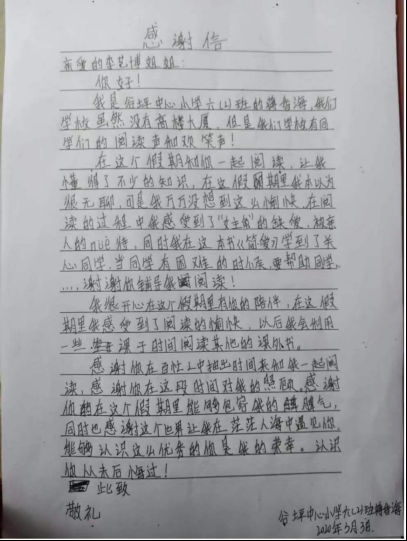 感谢信
亲爱的李艺博姐姐:
你好!
我是台坪中心小学六(2)班的,我们
学校虽然没有高楼大厦,但是我们学校有同
学们的阅读声和欢笑声!
在这个假期和你一起阅读,让我
懂得了不少的知识,在这假期里我本以为
很无聊,可是我万万没想到这么愉快,在阅
读的过程中我感受到了"女主角"的,被亲
人的nüè待,同时我在这本书《简爱》学到了关
心同学,当同学有困难的时候,要帮助同学,
...,谢谢你辅导我阅读!
我很开心在这个假期里有你的陪伴,在这假
期里我感受到了阅读的愉快,以后我会利用
一些课于时间阅读其他的课外书。
感谢你在百忙之中抽出时间来和我一起阅
读,感谢你在这段时间对我的照顾,感谢
你在这个假期里能够包容我的脾气,
同时也感谢这个世界让我在茫茫人海中遇见你,
能够认识这么优秀的你是我的荣幸。认识
你从未后悔过!
此致
敬礼
台坪中心小学六(2)班
2020年3月3日